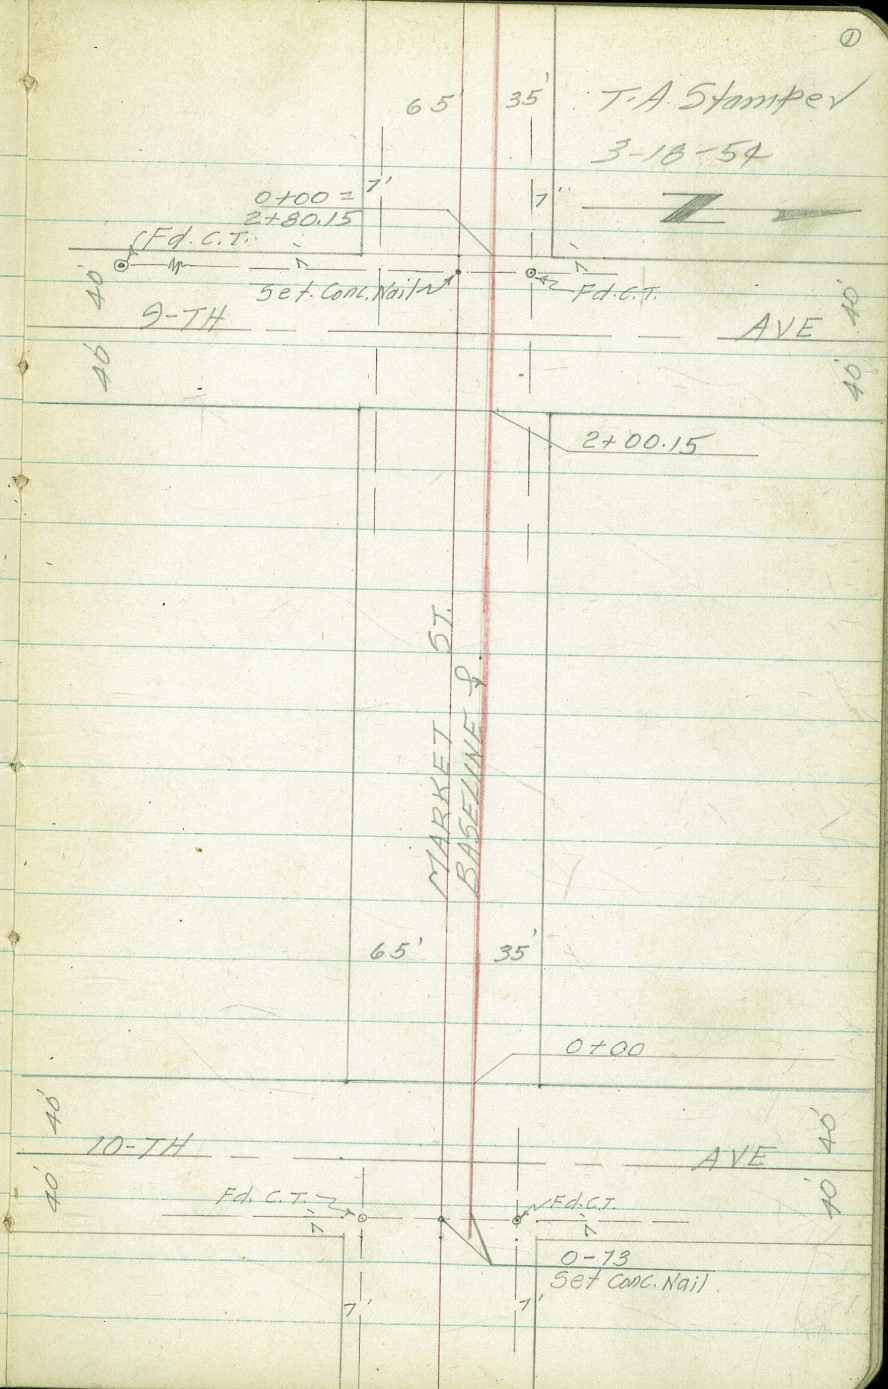 1
65' 35' T.A. Stamper
3-18-54
0+00 =
2+80.15
7'
7"
Fd. C.T.
7'
7'
Set. Conc. Nail
Fd. C.T.
40' 40'
9-TH AVE
40' 40'
2+00.15
MARKET ST.
BASELINE &
65' 35'
0+00
40' 40'
10-TH AVE
40' 40'
Fd. C.T. Fd. C.T.
7' 7'
0-73
Set Conc. Nail
7' 7'